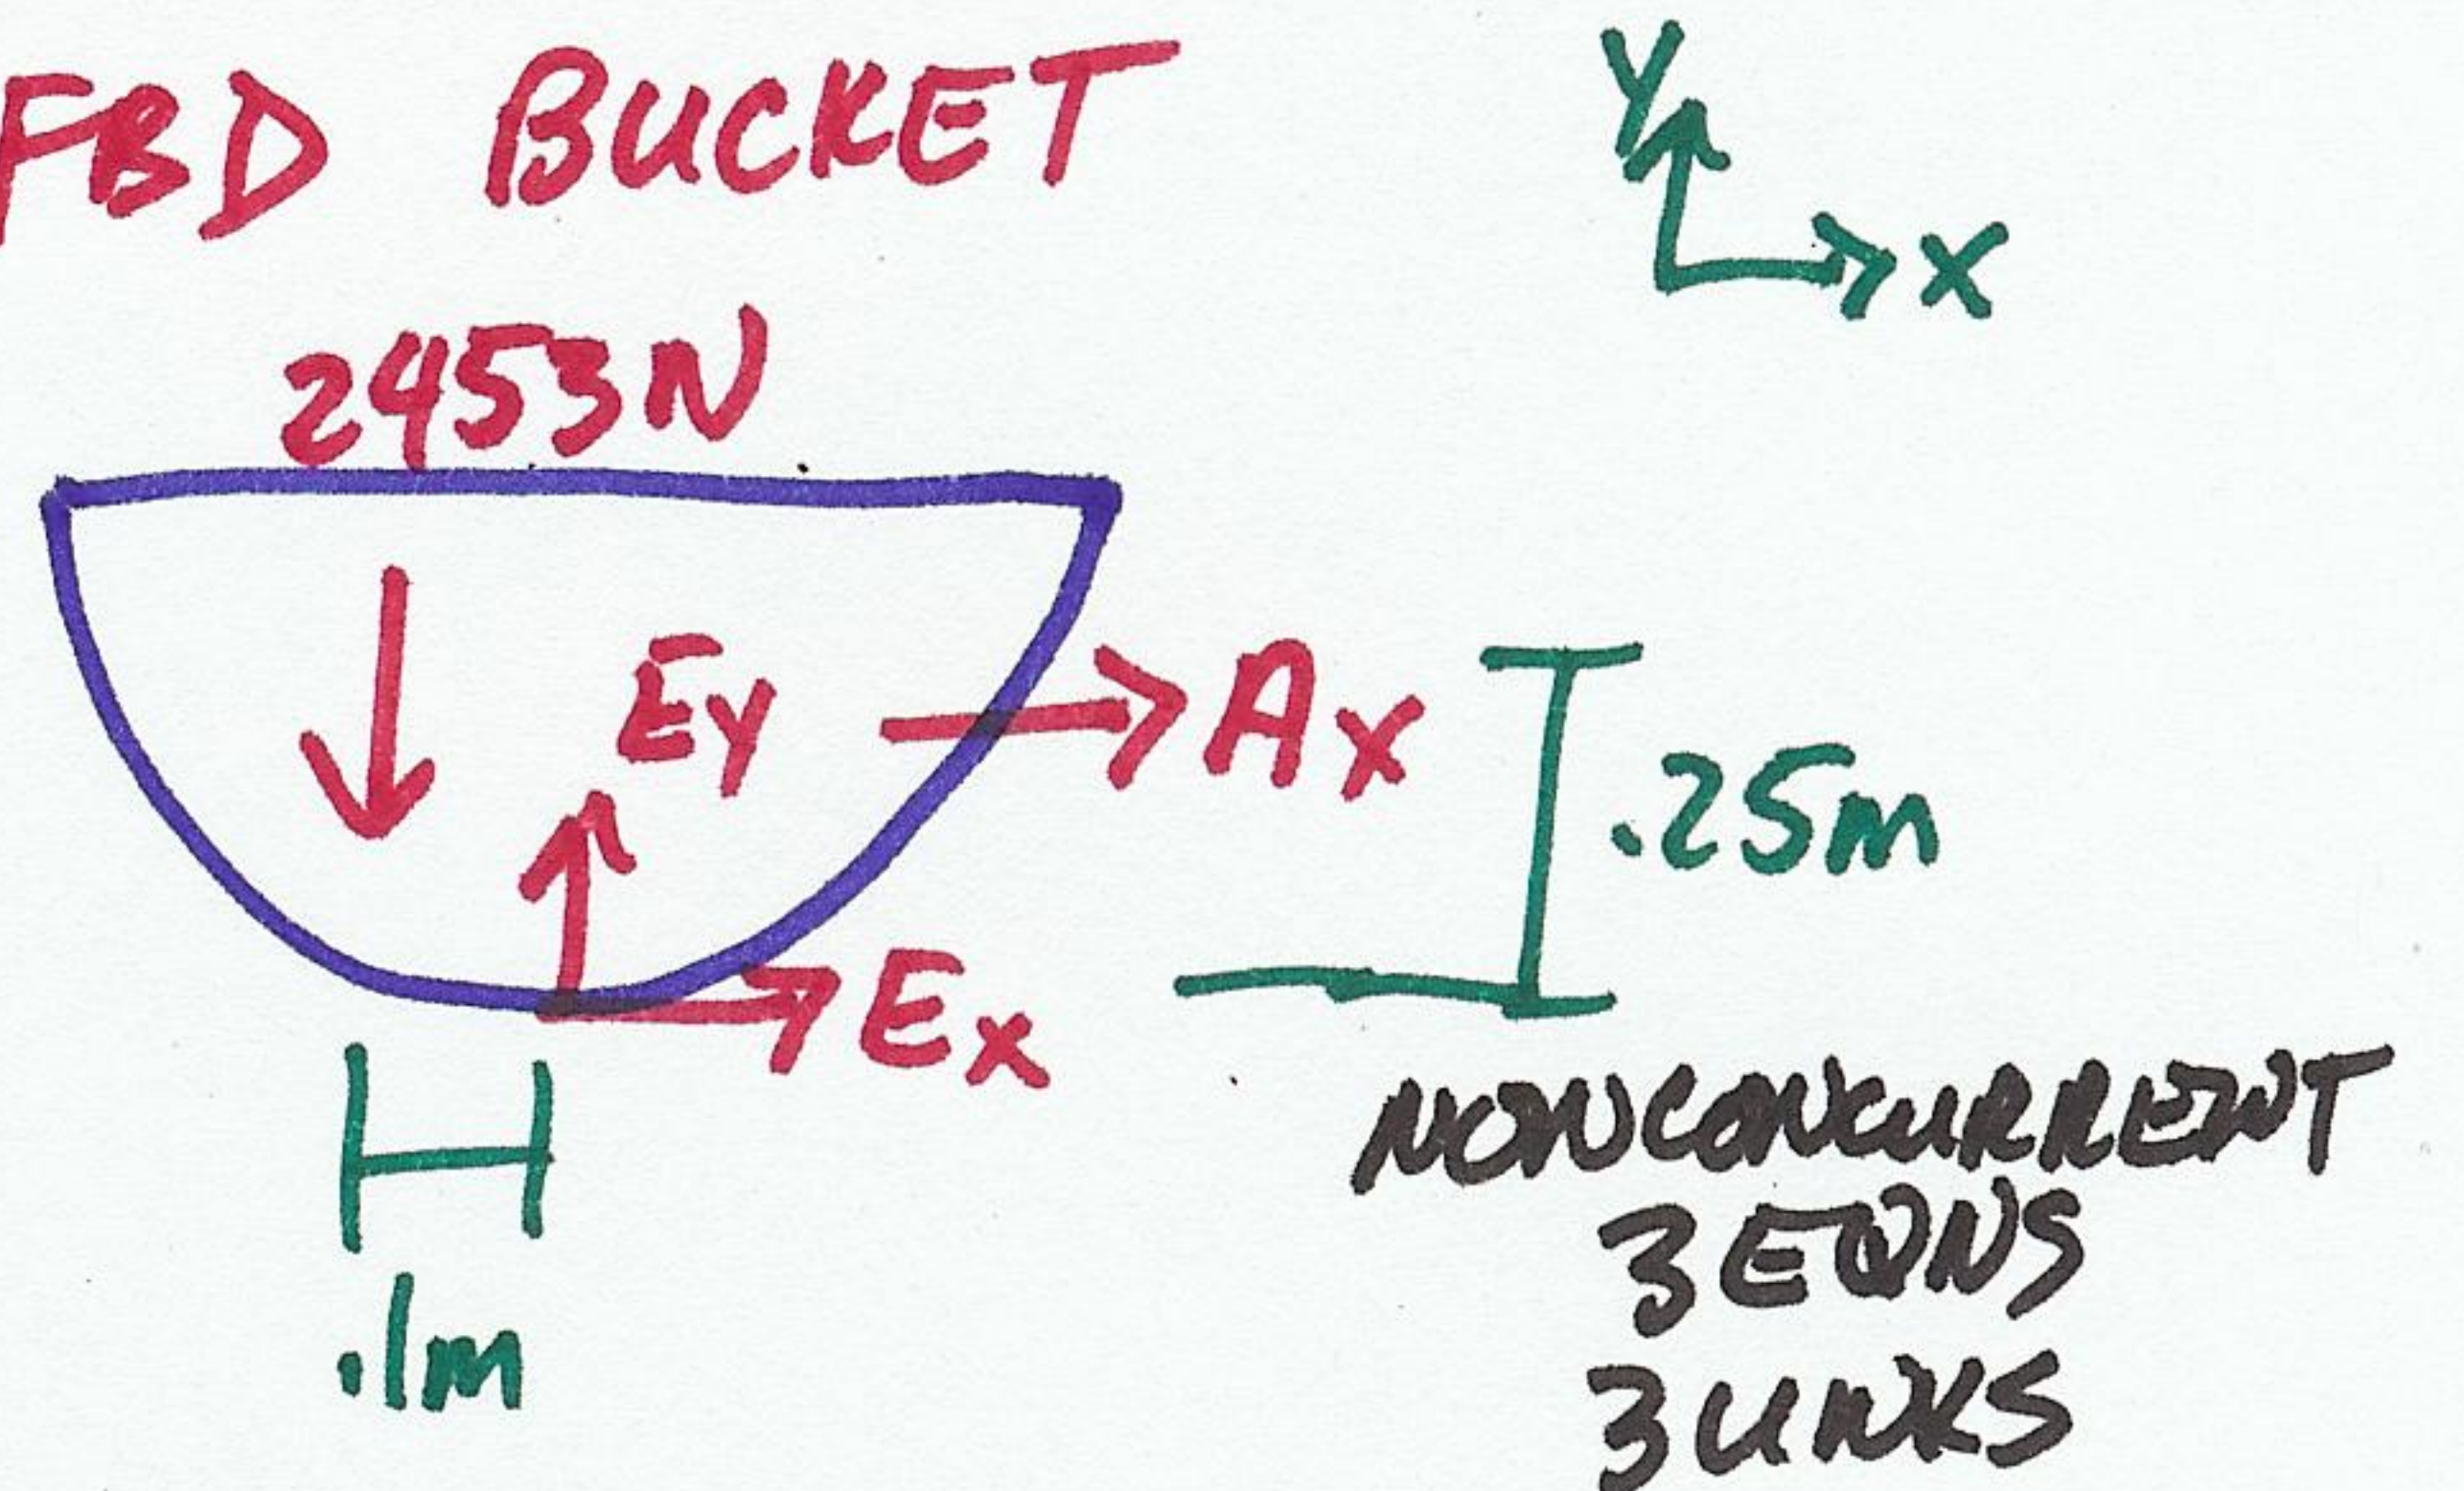 FBD BUCKET
Y
X
2453N
Ey
Ax
.25m
Ex
.1m
NONCONCURRENT
3 EQNS
3 UNKS